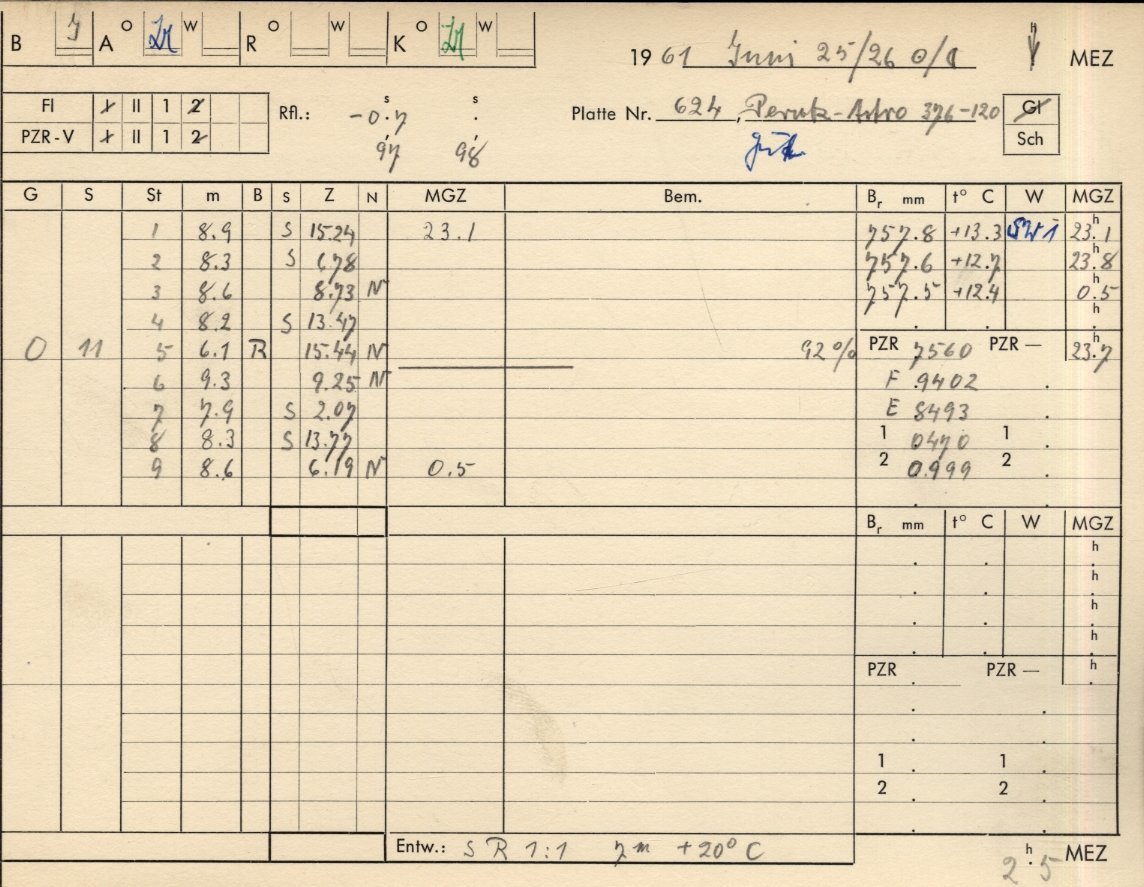 B J A O W R O W K O W
1961 Juni 25/26 ☉/☾ h MEZ
Fl I II 1 2
PZR-V I II 1 2
Rfl.: -0.7 s . s
97 98
Platte Nr. 624, Perutz-Astro 376-120 Gl
gut Sch
G S St m B S Z N MGZ Bem. Br mm t° C W MGZ
1 8.9 S 15.24 23.1 757.8 +13.3 SW 1 23.1 h
2 8.3 S 6.78 757.6 +12.7 23.8 h
3 8.6 8.73 N 757.5 +12.4 0.5 h
4 8.2 S 13.47 h
0 11 5 6.1 R 15.44 N 92% PZR 7560 PZR — 23.7 h
6 9.3 9.25 N F .9402
7 7.9 S 2.07 E 8493
8 8.3 S 13.77 1 0470 1
9 8.6 6.19 N 0.5 2 0.999 2
Br mm t° C W MGZ
h
h
h
h
PZR PZR — h
1 1
2 2
Entw.: S R 1:1 7m +20° C
2.5 h MEZ